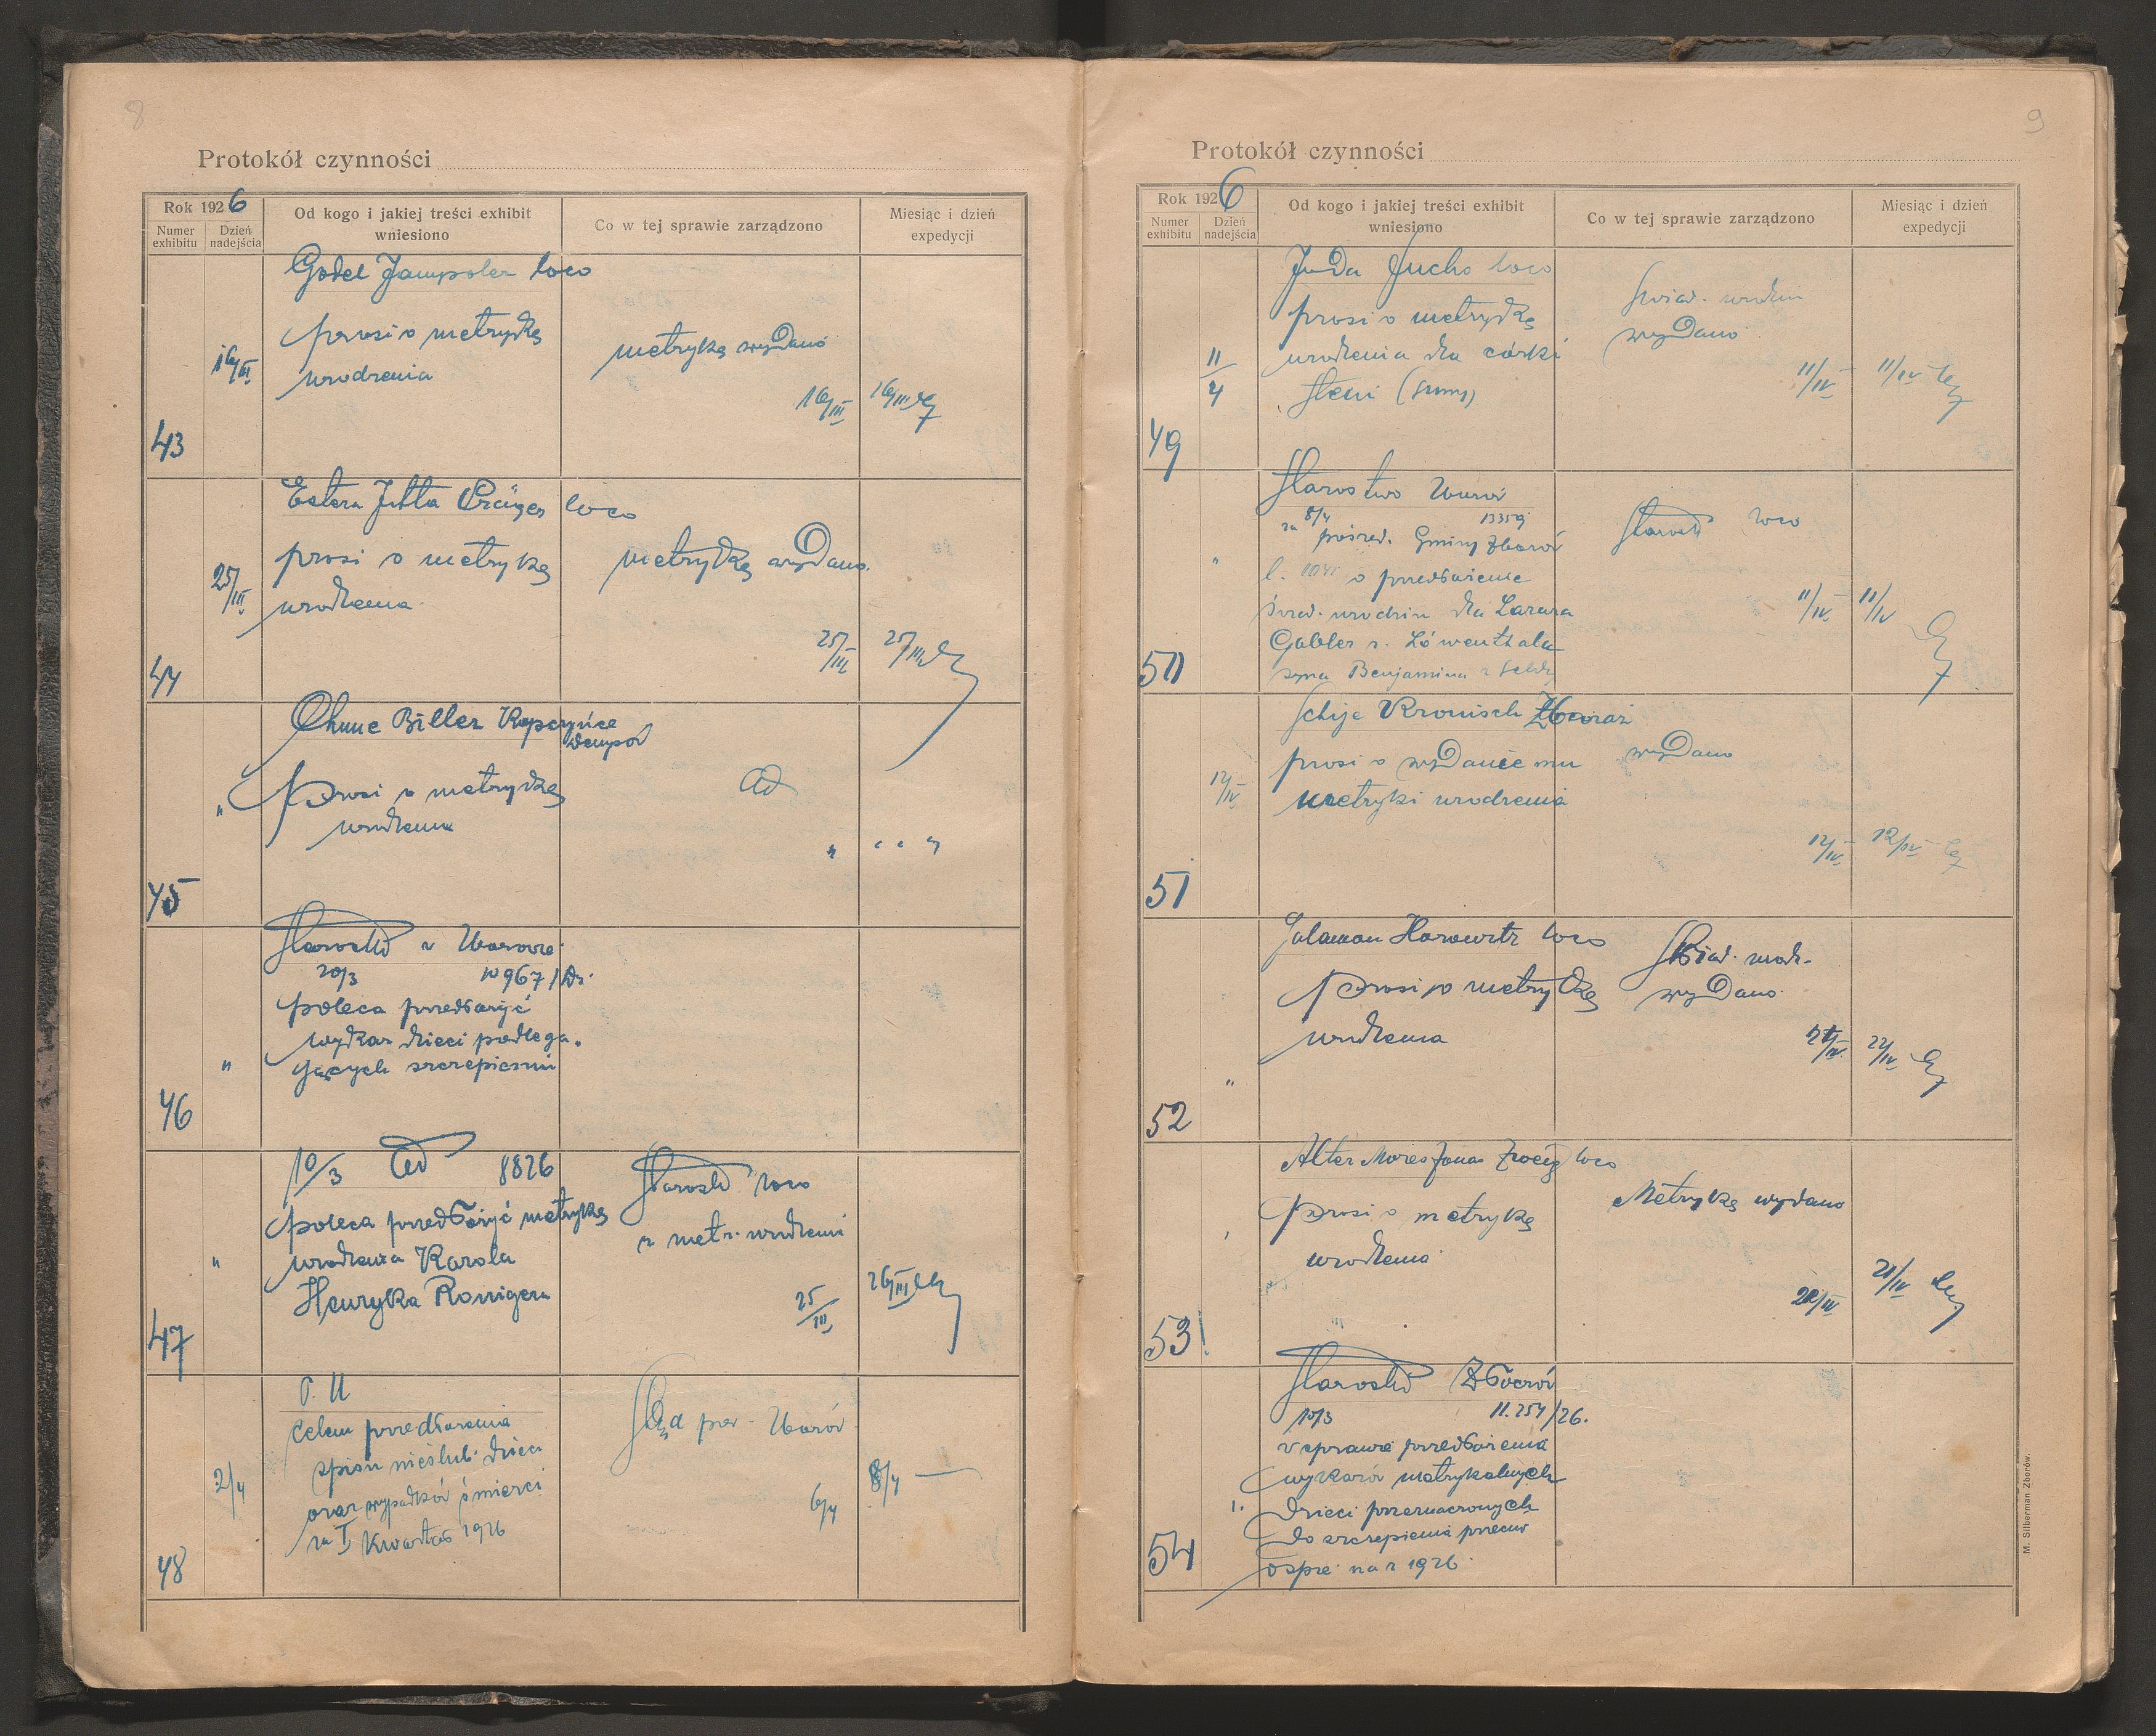 8
Protokół czynności
Rok 1926
Numer exhibitu
Dzień nadejścia
Od kogo i jakiej treści exhibit wniesiono
Co w tej sprawie zarządzono
Miesiąc i dzień expedycji
43
16/III
Godel Jampoler loco
prosi o metrykę
urodzenia
metrykę wydano
16/III
16/III
44
25/III
Estera Jutta Präger loco
prosi o metrykę
urodzenia
metrykę wydano.
25/III
25/III
45
"
Chune Biller Kopczyńce
prosi o metrykę
urodzenia
"
46
"
Starostwo w Zborowie
20/3 10967/
poleca przedłożyć
wykaz dzieci podlega-
jących szczepieniu
47
"
10/3 8826
poleca przedłożyć metrykę
urodzenia Karola
Henryka
Starostwo loco
z metr. urodzenia
25/III
26/III
48
2/4
celem przedłożenia
spisu nieślub. dzieci
oraz wypadków śmierci
za I kwartał 1926
Sąd pow. Zborów
6/4
8/4
9
Protokół czynności
Rok 1926
Numer exhibitu
Dzień nadejścia
Od kogo i jakiej treści exhibit wniesiono
Co w tej sprawie zarządzono
Miesiąc i dzień expedycji
49
11/4
Juda Fuchs loco
prosi o metrykę
urodzenia dla córki
Świad. urodzin
wydano
11/IV
11/IV
50
"
Starostwo Zborów
8/4 13359
za pośred. Gminy Zborów
l. o przedłożenie
świad. urodzin dla Lazara
Gabler r. Löwenthala
syna Benjamina z
Starostwo loco
11/IV
11/IV
51
12/IV
Schije Kronisch Zbaraż
prosi o wydanie mu
metryki urodzenia
wydano
12/IV
12/IV
52
"
Salamon Horowitz loco
prosi o metrykę
urodzenia
Świad. urodz.
wydano
22/IV
53
Alter Mozes Jonas loco
prosi o metrykę
urodzenia
Metrykę wydano
21/IV
54
Starostwo Złoczów
10/3 11.254/26.
w sprawie przedłożenia
wykazów metrykalnych
dzieci przeznaczonych
do szczepienia przeciw
ospie na r 1926
M. Silberman Zborów.